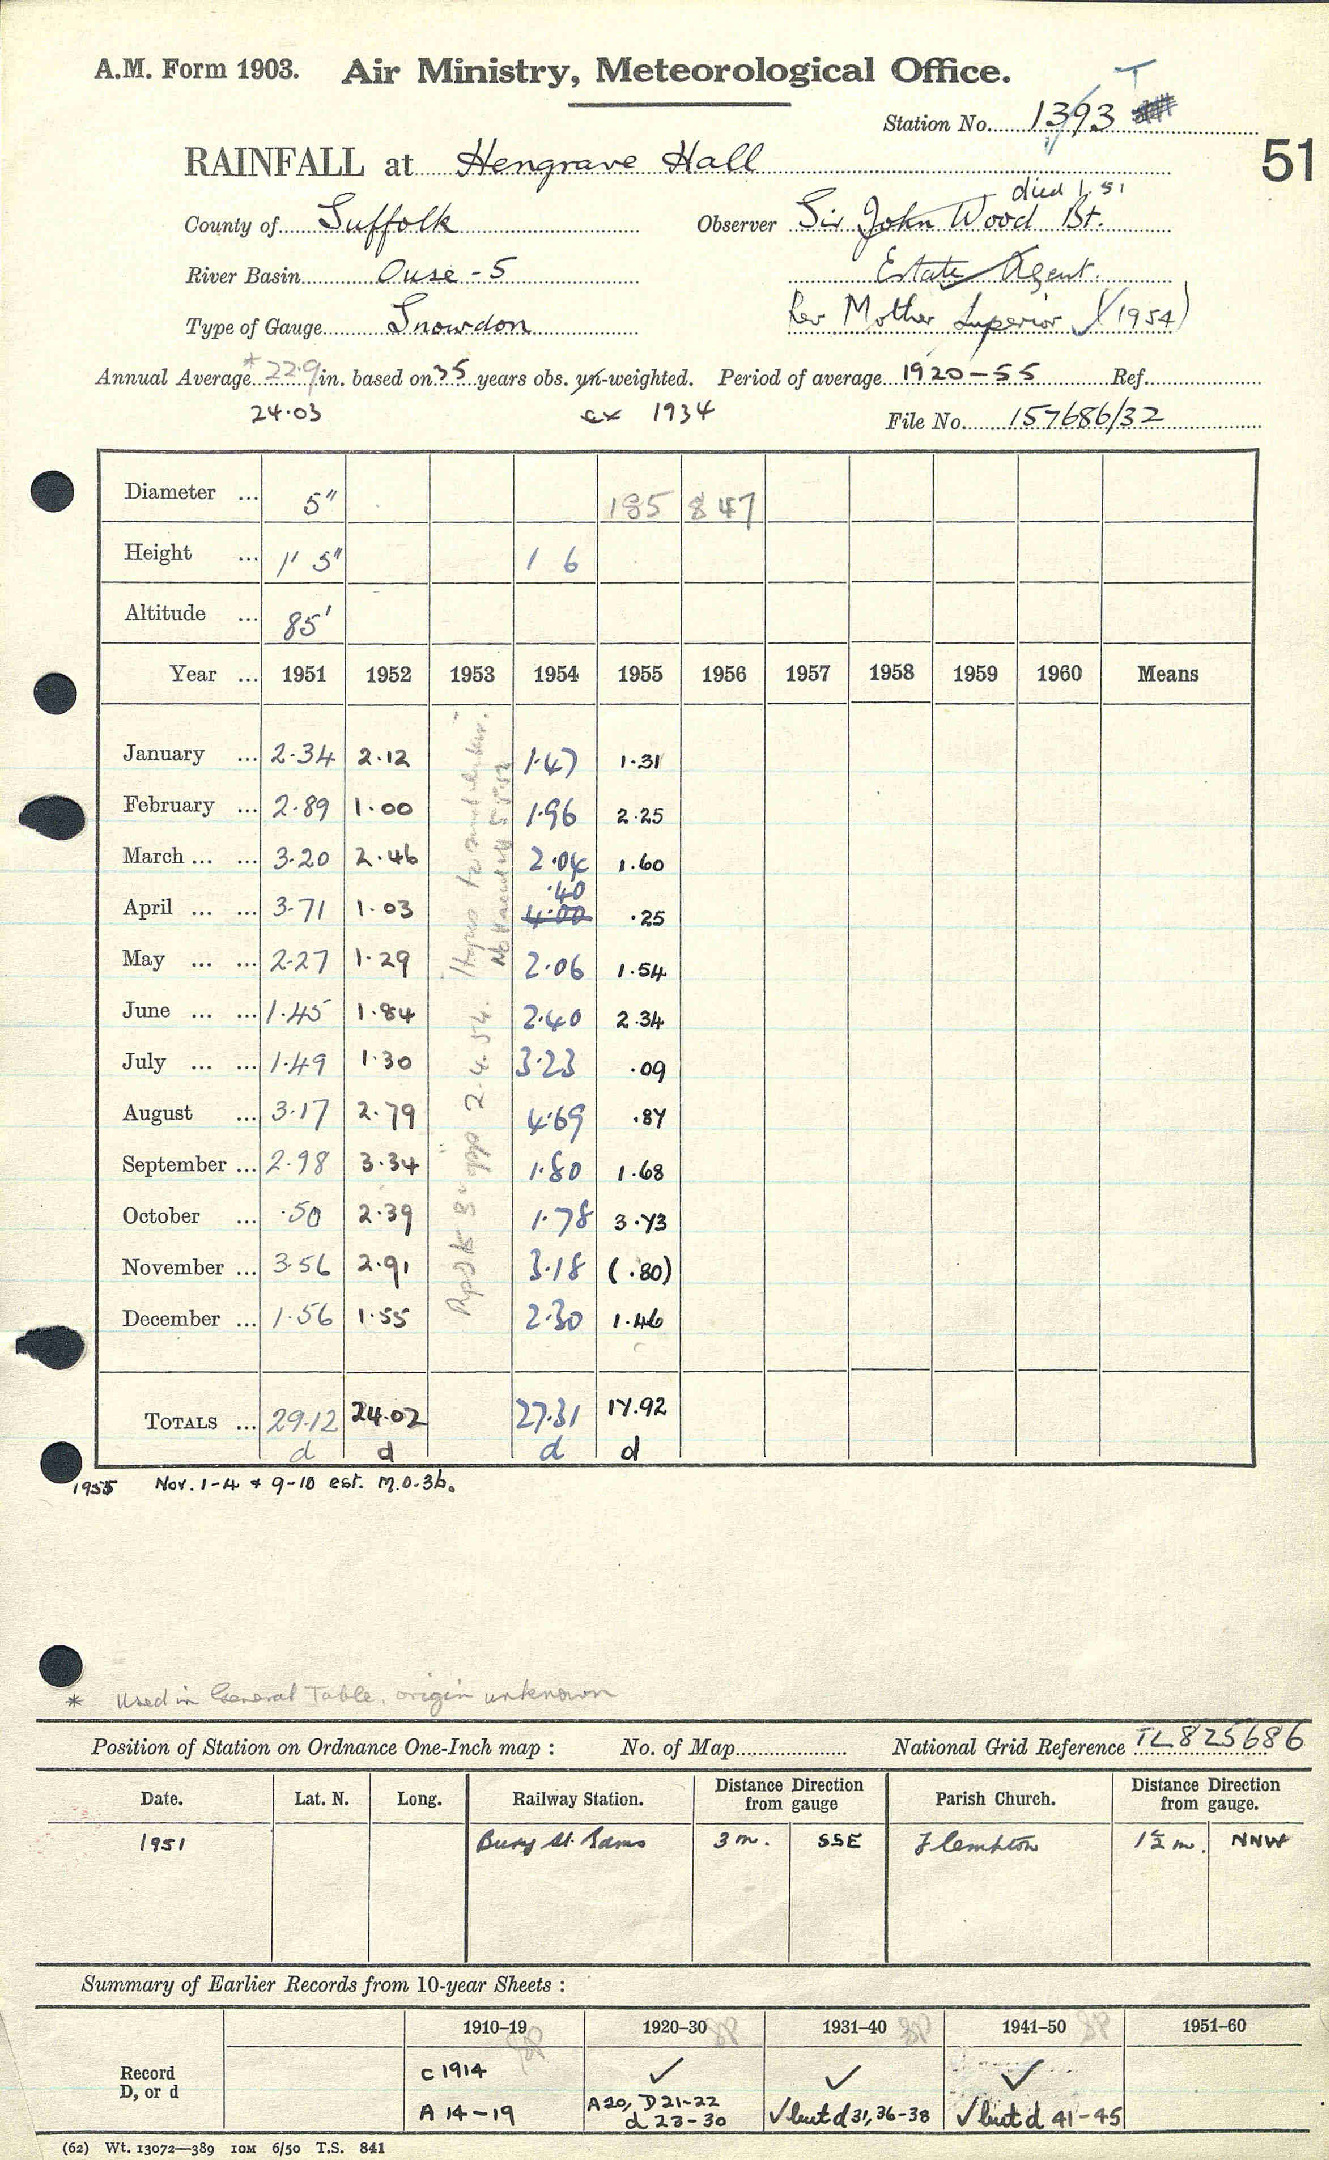 A.M. Form 1903. Air Ministry, Meteorological Office.
T
Station No. 1393
51
RAINFALL at Hengrave Hall
died 1.51
County of Suffolk Observer Sir John Wood Bt.
River Basin Ouse - 5 Estate Agent.
Type of Gauge Snowdon Rev Mother Superior (1954)
Annual Average *22.9 in. based on 35 years obs. un-weighted. Period of average 1920-55 Ref.
24.03 ex 1934 File No. 157686/32
Diameter ... 5" 185 847
Height ... 1' 5" 1 6
Altitude ... 85'
Year ... 1951 1952 1953 1954 1955 1956 1957 1958 1959 1960 Means
January ... 2.34 2.12 1.47 1.31
February ... 2.89 1.00 1.96 2.25
March ... ... 3.20 2.46 2.04 1.60
.40
April ... ... 3.71 1.03 4.00 .25
May ... ... 2.27 1.29 2.06 1.54
June ... ... 1.45 1.84 2.40 2.34
July ... ... 1.49 1.30 3.23 .09
August ... 3.17 2.79 4.69 .87
September ... 2.98 3.34 1.80 1.68
October ... .50 2.39 1.78 3.73
November ... 3.56 2.91 3.18 (.80)
December ... 1.56 1.55 2.30 1.46
2.4.54.
TOTALS ... 29.12 24.02 27.31 17.92
d d d d
1955 Nov. 1-4 & 9-10 est. M.O.3b.
* Used in General Table, origin unknown
Position of Station on Ordnance One-Inch map : No. of Map National Grid Reference TL825686
Date. Lat. N. Long. Railway Station. Distance from gauge Direction Parish Church. Distance from gauge. Direction
1951 Bury St. Edms 3 m. SSE Flempton 1½ m. NNW
Summary of Earlier Records from 10-year Sheets :
1910-19 1920-30 1931-40 1941-50 1951-60
Record c 1914 ✓ ✓ ✓
D, or d A 14-19 A20, D21-22 ✓ but d 31, 36-38 ✓ but d 41-45
d 23-30
(62) Wt. 13072—389 10M 6/50 T.S. 841